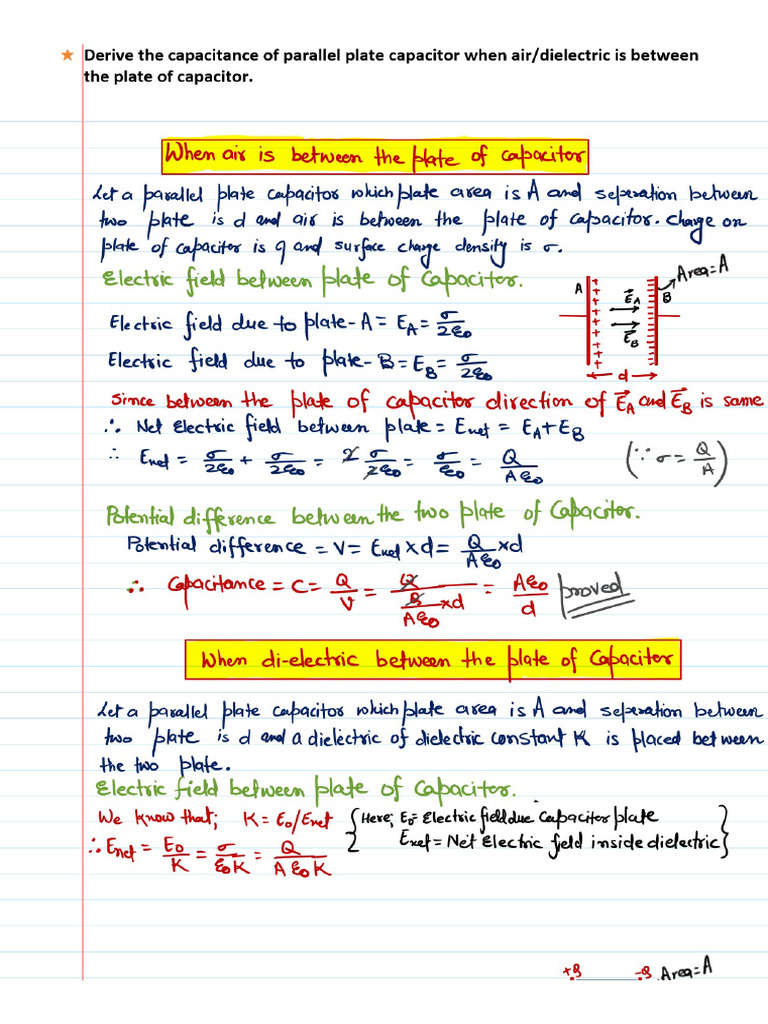 ★ Derive the capacitance of parallel plate capacitor when air/dielectric is between
the plate of capacitor.
When air is between the plate of capacitor
Let a parallel plate capacitor which plate area is A and seperation between
two plate is d and air is between the plate of capacitor. charge on
plate of capacitor is q and surface charge density is σ.
Electric field between plate of capacitor.
Area=A
A E⃗_A B
E⃗_B
d
Electric field due to plate-A = E_A = σ/2ε0
Electric field due to plate-B = E_B = σ/2ε0
Since between the plate of capacitor direction of E⃗_A and E⃗_B is same
∴ Net Electric field between plate = Enet = E_A + E_B
∴ Enet = σ/2ε0 + σ/2ε0 = 2 σ/2ε0 = σ/ε0 = Q/Aε0 (∵ σ = Q/A)
Potential difference between the two plate of Capacitor.
Potential difference = V = Enet × d = Q/Aε0 × d
∴ Capacitance = C = Q/V = Q/(Q/Aε0 × d) = Aε0/d proved
When di-electric between the plate of Capacitor
Let a parallel plate capacitor which plate area is A and seperation between
two plate is d and a dielectric of dielectric constant K is placed between
the two plate.
Electric field between plate of capacitor.
We know that; K = E0/Enet {Here; E0 = Electric field due capacitor plate
Enet = Net Electric field inside dielectric}
∴ Enet = E0/K = σ/ε0K = Q/Aε0K
+Q -Q Area=A